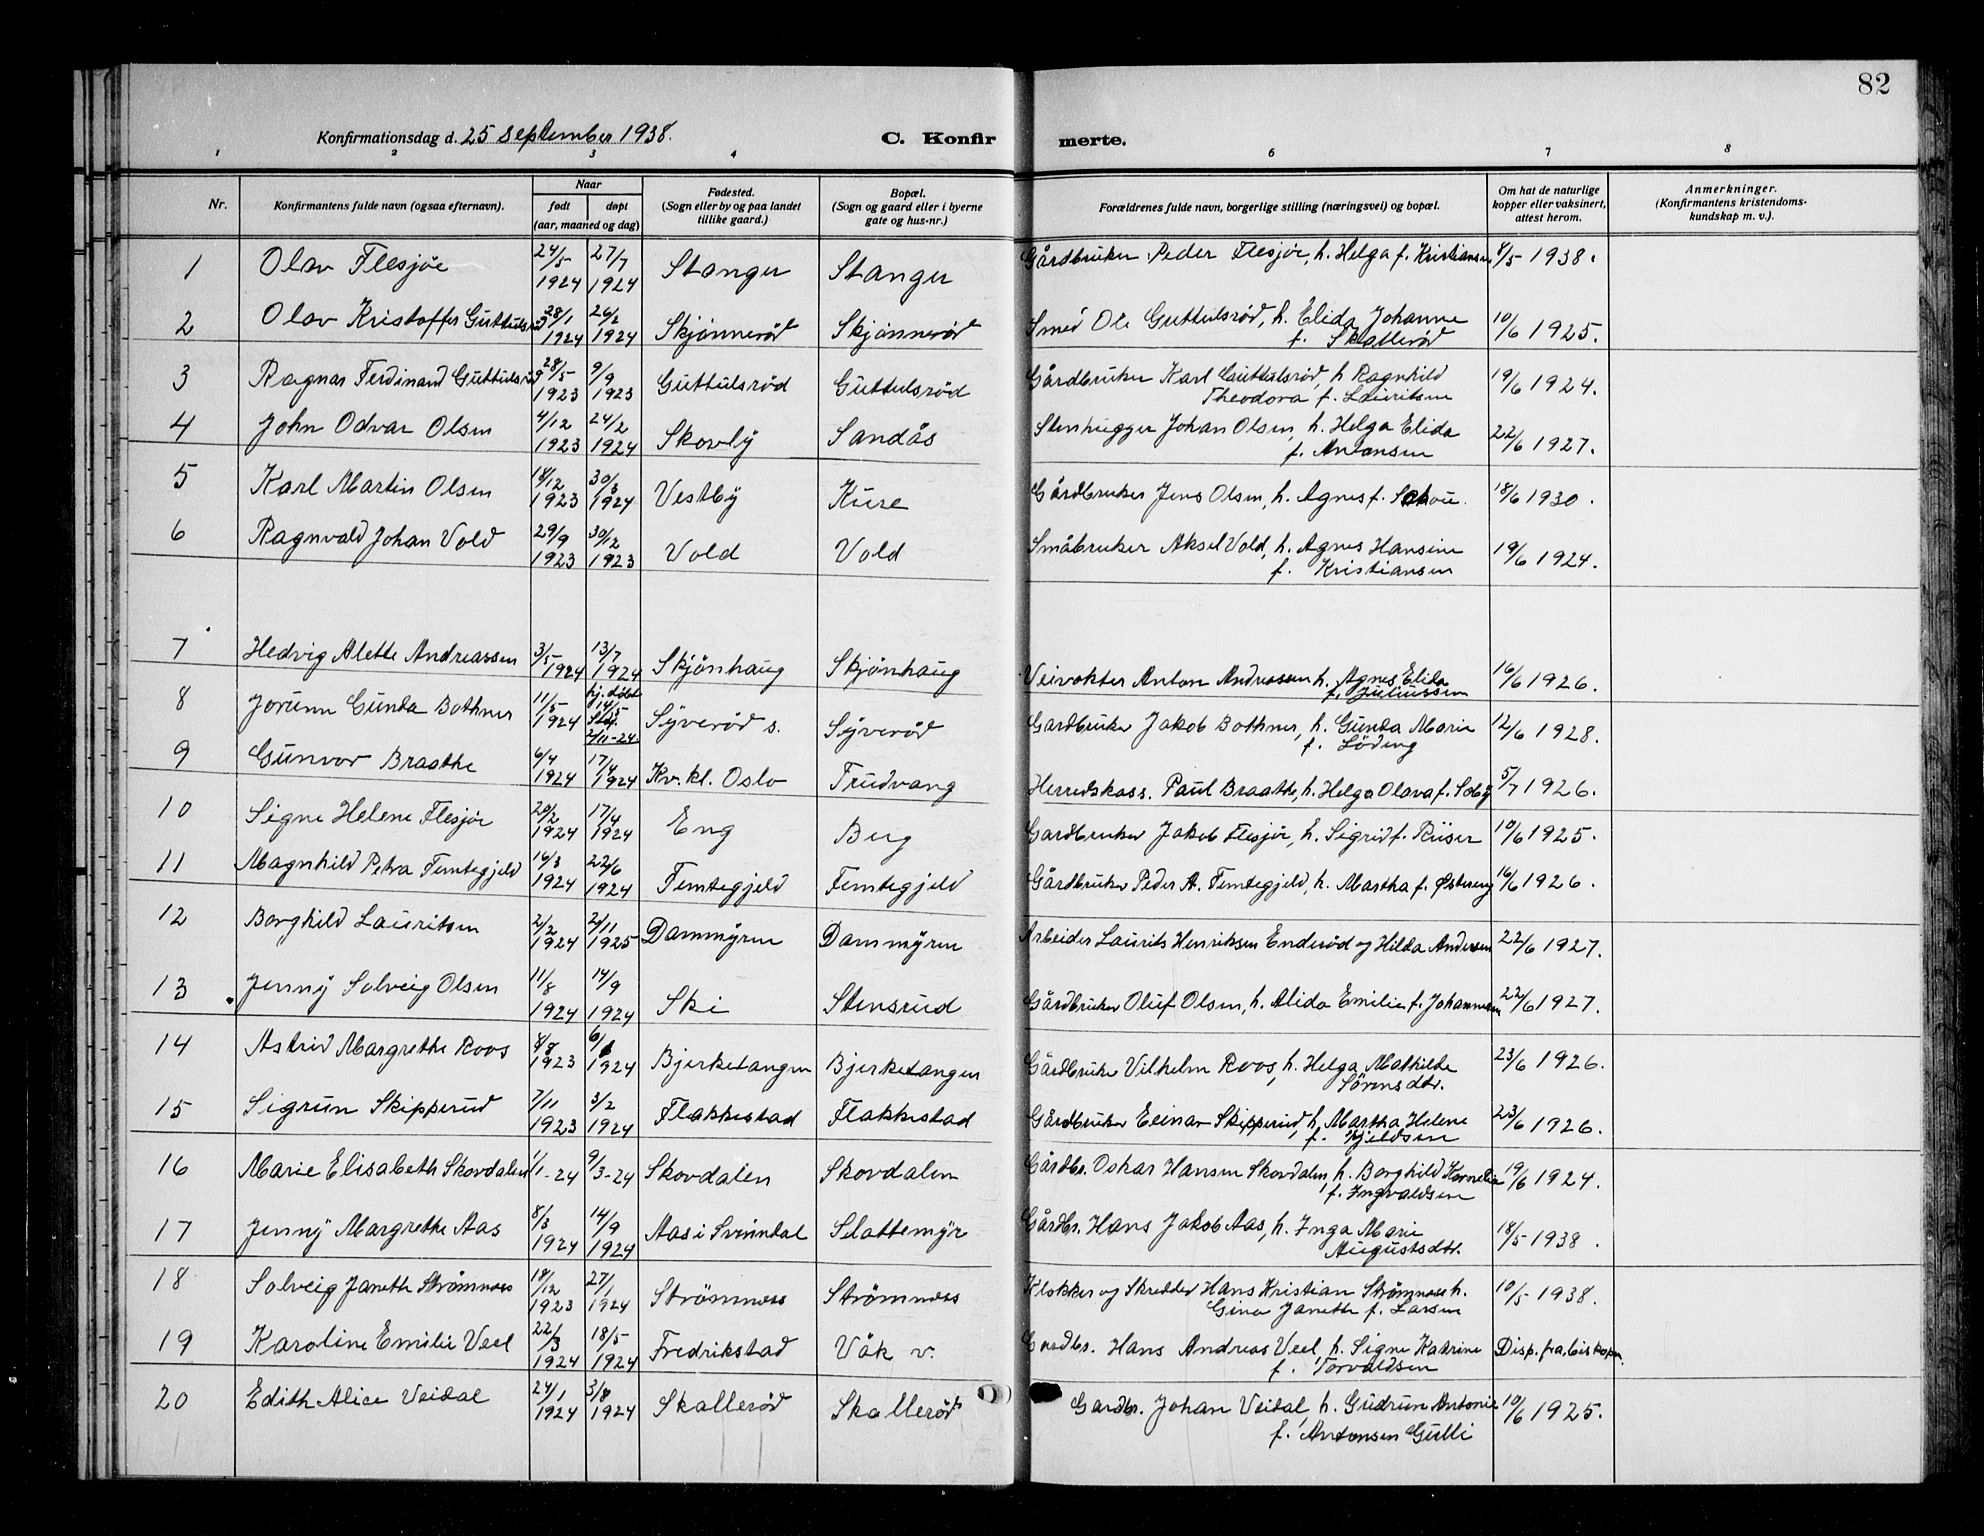 82
Konfirmationsdag d. 25 September 1938. C. Konfir merte.
1 2 3 4 6 7 8
Nr. Konfirmantens fulde navn (ogsaa efternavn). Naar født døpt (aar, maaned og dag) Fødested. (Sogn eller by og paa landet tillike gaard.) Bopæl. (Sogn og gaard eller i byerne gate og hus-nr.) Forældrenes fulde navn, borgerlige stilling (næringsvei) og bopæl. Om hat de naturlige kopper eller vaksinert, attest herom. Anmerkninger. (Konfirmantens kristendomskundskap m. v.).
1 Olav Flesjøe 24/5 1924 27/7 1924 Stanger Stanger Gårdbruker Peder Flesjør, h. Helga f. Kristiansen 8/5 1938.
2 Olav Kristoffer Guttulsrød 28/1 1924 26/2 1924 Skjønnerød Skjønnerød Smed Ole Guttulsrød, h. Elida Johanne f. Skallerød 10/6 1925.
3 Ragnar Ferdinand Guttulsrød 28/5 1923 9/9 1923 Guttulsrød Guttulsrød Gårdbruker Karl Guttulsrød, h Ragnhild Theodora f. Lauritsen 19/6 1924.
4 John Odvar Olsen 4/12 1923 24/2 1924 Skovly Sandås Stenhugger Johan Olsen, h. Helga Elida f. Antonsen 22/6 1927.
5 Karl Martin Olsen 18/12 1923 30/3 1924 Vestby Kure Gårdbruker Jens Olsen, h. Agnes f. Schou. 18/6 1930.
6 Ragnvald Johan Vold 29/9 1923 30/12 1923 Vold Vold Småbruker Aksel Vold, h. Agnes Hansine f. Kristiansen 19/6 1924.
7 Hedvig Alette Andreassen 3/5 1924 13/7 1924 Skjönhaug Skjönhaug Veivokter Anton Andreassen h. Agnes Elida f. Juliussen 16/6 1926.
8 Jorunn Gunda Bothner 11/5 1924 hj. döbt 14/5 Stdf. 2/11-24 Syverød s. Syverød Gardbruker Jakob Bothner, h. Gunda Marie f. Löding 12/6 1928.
9 Gunvor Braathe 6/4 1924 17/4 1924 Kv. kl. Oslo Trudvang Herredskass. Paul Braathe, h. Helga Olava f. Solby 5/7 1926.
10 Signe Helene Flesjør 20/2 1924 17/4 1924 Eng Berg Gardbruker Jakob Flesjør, h. Sigrid f. Riiser 10/6 1925.
11 Magnhild Petra Femtegjeld 16/3 1924 22/6 1924 Femtegjeld Femtegjeld Gårdbruker Peder A. Femtegjeld, h. Martha f. Østereng 16/6 1926.
12 Borghild Lauritsen 2/2 1924 2/11 1925 Dammyren Dammyren Arbeider Laurits Henriksen Enderød og Hilda Andersen 22/6 1927.
13 Jenny Solveig Olsen 11/8 1924 14/9 1924 Ski Stensrud Gårdbruker Oluf Olsen, h. Alida Emilie f. Johannesen 22/6 1927.
14 Astrid Margrethe Roos 1923 6/1 1924 Bjerketangen Bjerketangen Gårdbruker Vilhelm Roos, h. Helga Mathilde Sørensdtr. 23/6 1926.
15 Sigrun Skipperud 7/11 1923 3/2 1924 Flakkestad Flakkestad Gårdbruker Einar Skipperud, h. Martha Helene f. Kjeldsen 23/6 1926.
16 Marie Elisabeth Skovdalen 1/1-24 9/3-24 Skovdalen Skovdalen Gårdbr. Oskar Hansen Skovdalen, h. Borghild Kornelia f. Ingvaldsen 19/6 1924.
17 Jenny Margrethe Aas 8/3 1924 14/9 1924 Aas i Svinndal Slattemyr Gårdbr. Hans Jakob Aas, h. Inga Marie Augustsdtr. 18/5 1938.
18 Solveig Janette Strømnæs 18/12 1923 27/1 1924 Strömnæs Strømnæs Klokker og Skredder Hans Kristian Strømnæs h. Gina Janette f. Larsen 10/5 1938.
19 Karoline Emilie Veel 22/3 1924 18/5 1924 Fredrikstad Våk v. Gardbr. Hans Andreas Veel, h. Signe Katrine f. Torvaldsen Disp. fra biskopen.
20 Edith Alice Veidal 24/1 1924 3/8 1924 Skallerød Skallerød Gardbr. Johan Veidal, h. Gudrun Antonie f. Antonsen Gulli 10/6 1925.